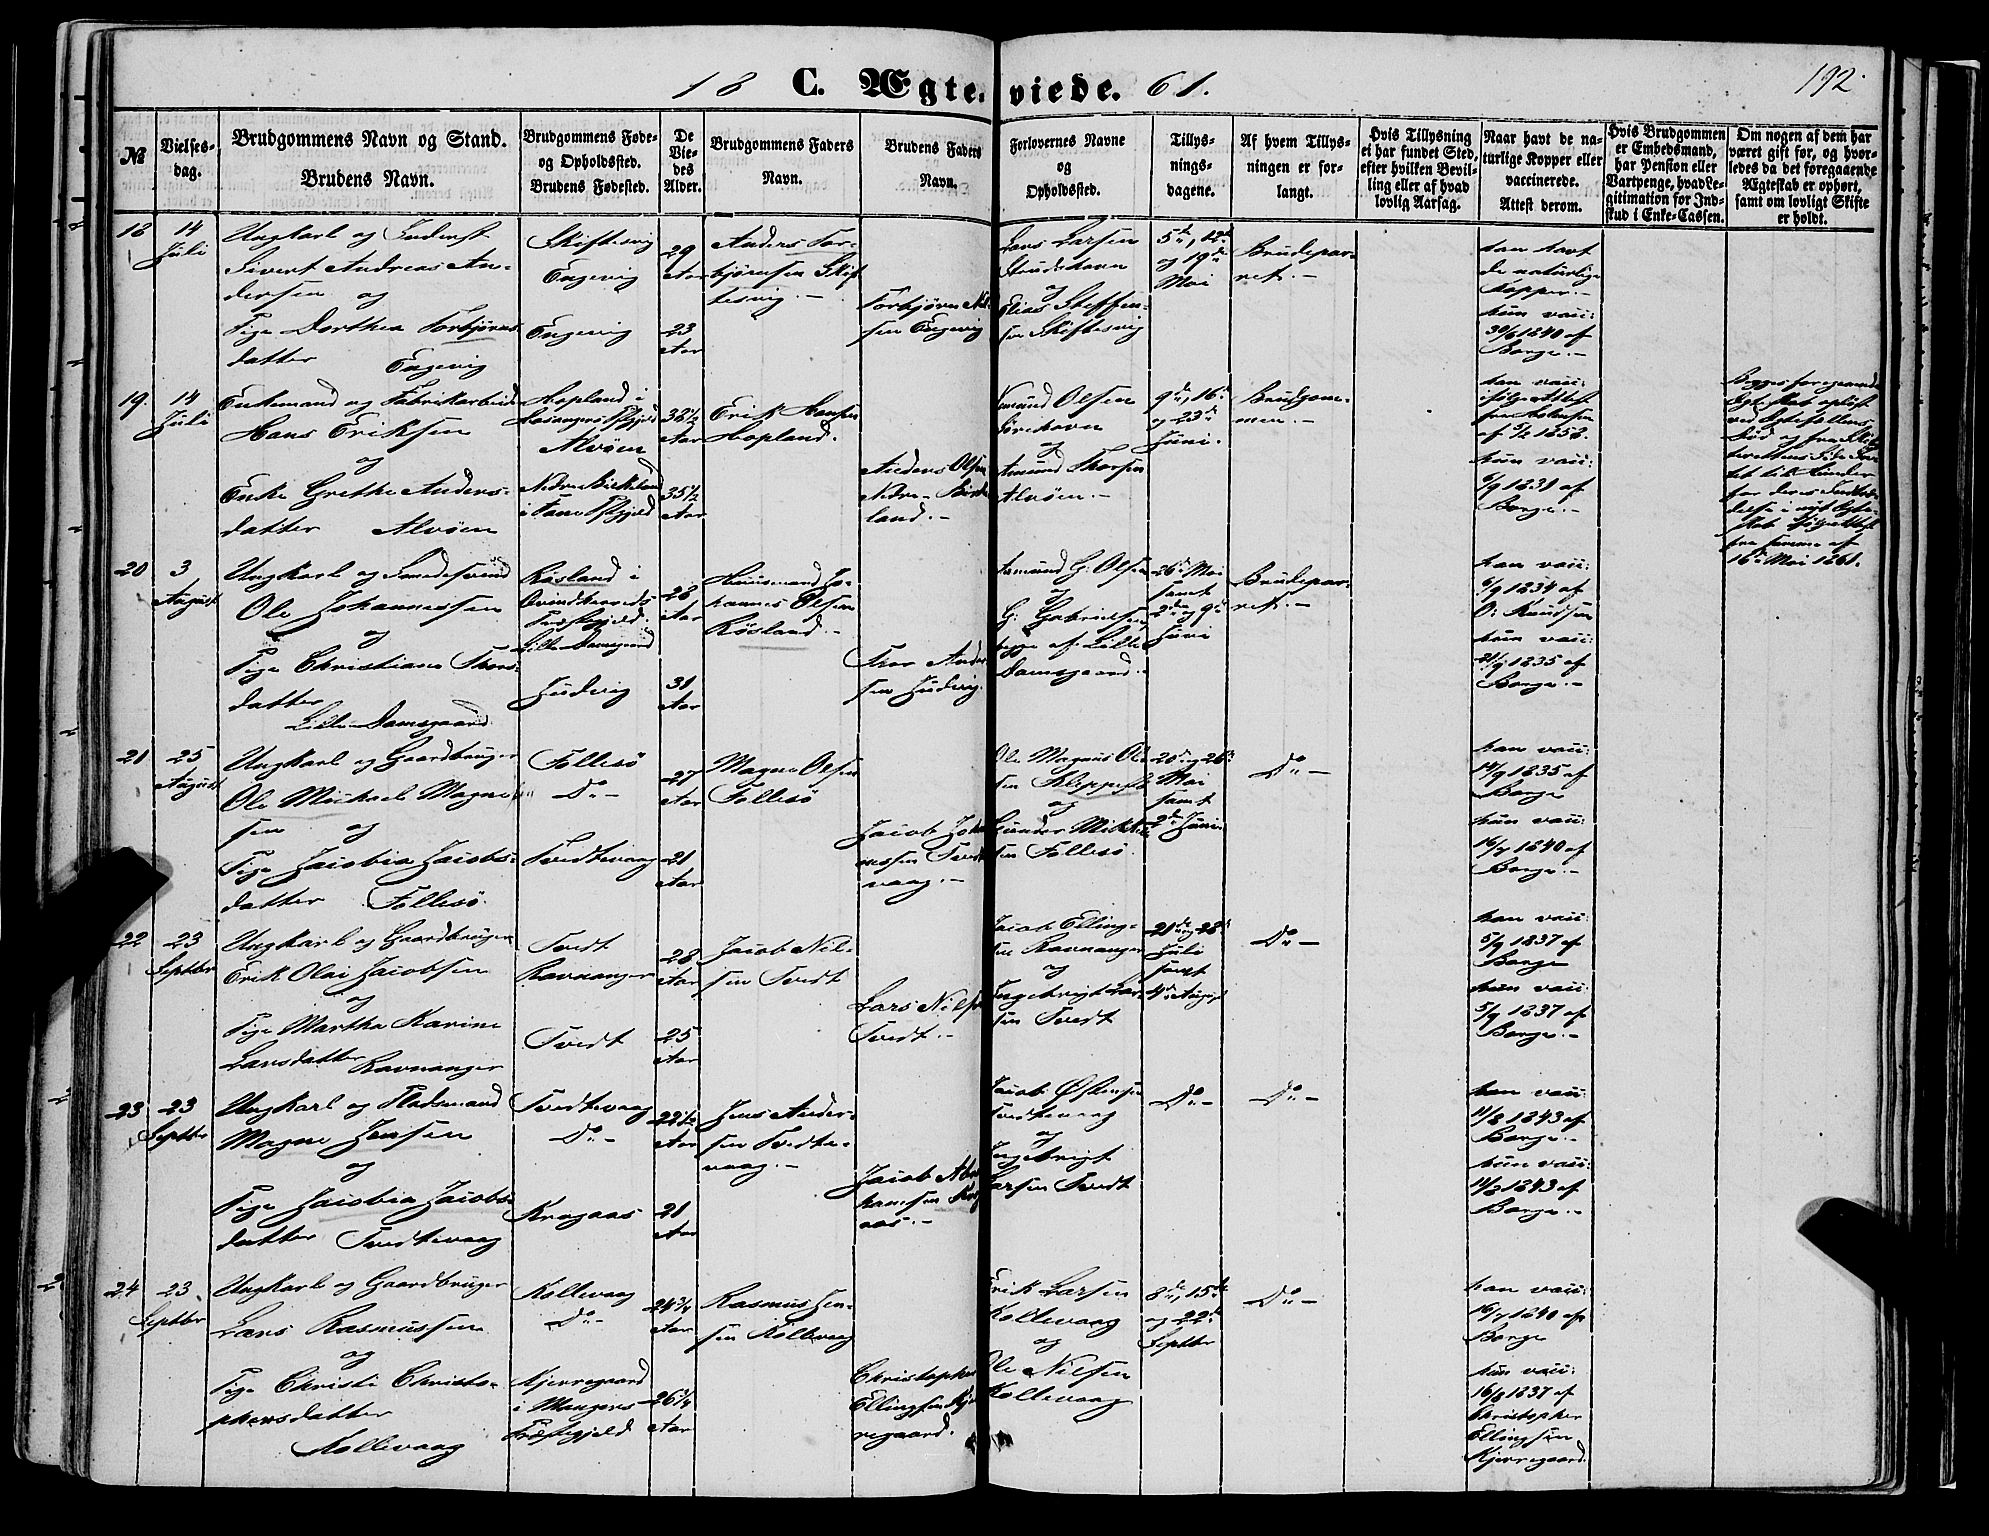 18 C. Ægteviede. 61.
192.
No
Vielses-
dag.
Brudgommens Navn og Stand.
Brudens Navn.
Brudgommens Føde-
og Opholdssted.
Brudens Fødested.
De
Vie-
des
Alder.
Brudgommens Faders
Navn.
Brudens Faders
Navn.
Forlovernes Navne
og
Opholdssted.
Tillys-
nings-
dagene.
Af hvem Tillys-
ningen er for-
langt.
Hvis Tillysning
ei har fundet Sted,
efter hvilken Bevil-
ling eller af hvad
lovlig Aarsag.
Naar havt de na-
turlige Kopper eller
vaccinerede.
Attest derom.
Hvis Brudgommen
er Embedsmand,
har Pension eller
Vartpenge, hvad Le-
gitimation for Ind-
skud i Enke-Cassen.
Om nogen af dem har
været gift før, og hvor-
ledes da det foregaaende
Ægteskab er ophørt,
samt om lovligt Skifte
er holdt.
18
14
Juli
Ungkarl og
Sivert Andreas An-
dersen og
Pige Dorthea Torbjørns-
datter Engevig
Skiftesvig
Engevig
Engevig
29
Aar
23
Aar
Anders Tor-
bjørnsen Skif-
tesvig.-
Torbjørn Nil-
sen Engevig
Lars Larsen
og
Elias Steffen-
sen Skiftesvig
5te, 12te
og 19de
Mai
Brudepar-
ret.-
han havt
de naturlige
Kopper.-
hun vacc:
30/6 1840 af
Borge.-
19.
14
Juli
Enkemand og Fabrikarbeider
Hans Eriksen
og
Enke Grethe Anders-
datter Alvøen
Hopland i
Alvøen
Nedre Birkeland
i Fane Prstgjeld
38 1/2
Aar
35 1/2
Aar
Erik Hansen
Hopland.
Anders Olsen
Nedre Birke-
land.-
Amund Olsen
og
Amund Thorsen
Alvøen.-
9de, 16de
og 23de
Juni.
Brudgom-
men.-
han vacc:
ifølge Attest
hun vacc:
6/9 1831 af
Borge.-
Begges foregaaende
Døde og fra Skif-
16de Mai 1861.
20
3
August
Ungkarl og Smedesvend
Ole Johannessen
og
Pige Christiane Thors-
datter
Lille Damsgaard
Røsland i
Qvindherreds
Præstegjeld.
Lille Damsgaard
Judvig
28
Aar
31
Aar
Huusmand Jo-
hannes Olsen
Røsland.-
Thor Ander-
sen Judvig.
Amund G. Olsen
og
G. Gabrielsen,
begge af Lille
Damsgaard.
26de Mai
samt
2den og 9de
Juni
Brudepar-
ret.-
han vacc:
6/9 1834 af
O: Knudsen
hun vacc:
21/9 1835 af
Borge.-
21
25
August
Ungkarl og Gaardbruger
Ole Michael Magne-
sen og
Pige Jacobia Jacobs-
datter Follesø.
Follesø
Do-
Tvedtevaag
27
Aar
21
Aar
Magne Olsen
Follesø
Jacob Joha-
nessen Tvedte-
vaag.-
Ole Magnus Ol-
sen Kleppestø
og
Gunder Mikkel-
sen Follesø.
20de og 26de
Mai
samt
2den Juni
Do-
han vacc:
14/9 1835 af
Borge
hun vacc:
16/7 1840 af
Borge.-
22
23
Septbr
Ungkarl og Gaardbruger
Erik Olai Jacobsen
og
Pige Martha Karine
Larsdatter Ravnanger
Tvedt
Ravnanger
Tvedt
28
Aar
25
Aar
Jacob Nil-
sen Tvedt
Lars Nilsen
Tvedt.-
Jacob Elling-
sen Ravnanger
og
Ingebrigt Lar-
sen Tvedt
21de og 28de
Juli
samt
4de August
Do-
han vacc:
5/9 1837 af
Borge
hun vacc:
5/9 1837 af
Borge.-
23
23
Septbr
Ungkarl og Pladsmand
Magne Jensen
og
Pige Jacobia Jacobs-
datter Tvedtevaag
Tvedtevaag
Do-
Krogaas
22 1/2
Aar
21
Aar
Jens Ander-
sen Tvedte-
vaag.-
Jacob Abra-
hamsen Krog-
aas.-
Jacob Østensen
Tvedtevaag
og
Ingebrigt
Larsen Tvedt
Do-
Do-
han vacc:
14/8 1843 af
Borge.-
hun vacc:
14/8 1843 af
Borge.-
24
23
Septbr
Ungkarl og Gaardbruger
Lars Rasmussen
og
Pige Christi Christo-
phersdatter
Kollevaag
Kollevaag
Do-
Kjerregaard
i Mangers
Præstegjeld
24 3/4
Aar
26 1/4
Aar
Rasmus Jen-
sen Kollevaag
Christopher
Ellingsen Kjer-
regaard.
Erik Larsen
Kollevaag
og
Ole Nilsen
Kollevaag
8de, 15de
og 22de
Septbr
Do-
han vacc:
16/7 1840 af
Borge
hun vacc:
16/8 1837 af
Christopher
Ellingsen
Kjerregaard.